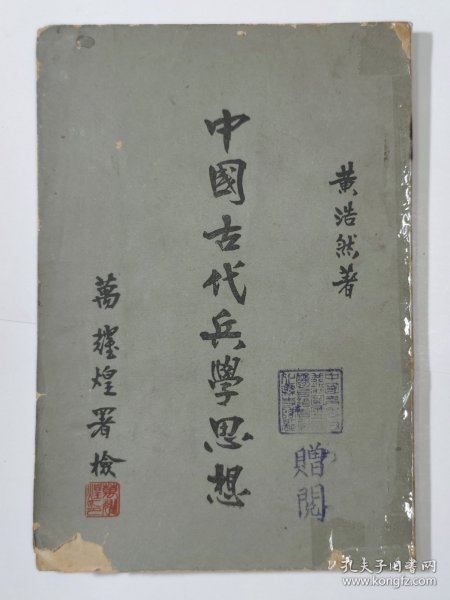 黃浩然著
中國古代兵學思想
萬耀煌署檢
贈閱
孔夫子旧书网
www.kongfz.com